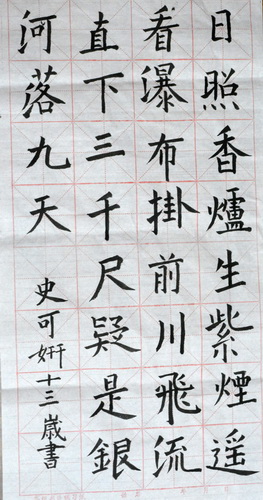 日照香爐生紫煙遥
看瀑布掛前川飛流
直下三千尺疑是銀
河落九天
史可妍十三歲書